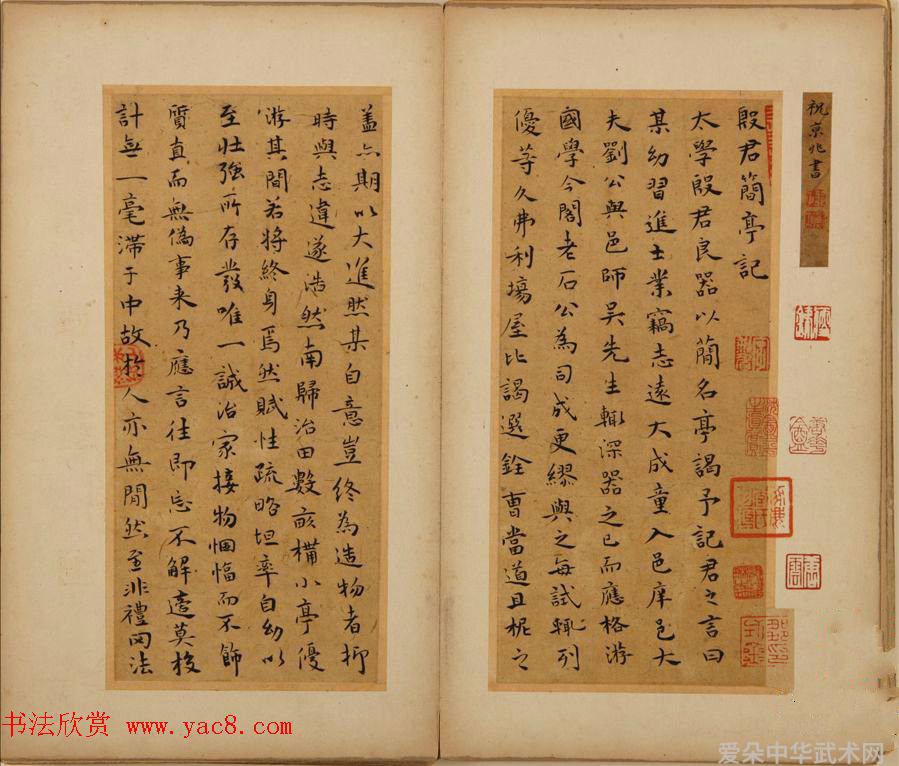 祝京兆書
殷君簡亭記
太學殷君民器以簡名亭謁予記君之言曰
某幼習進士業竊志遠大成童入邑庠邑大
夫劉公與邑師吳先生輒深器之已而應格游
國學今閣老石公為司成更繆與之每試輒列
優等久弗利場屋比謁選銓曹當道且柅之
蓋亦期以大進然某自意豈終為造物者抑
時與志違遂浩然南歸治田數畝構小亭優
游其間若將終身焉然賦性疏略坦率自幼以
至壯強所存發唯一誠治家接物悃愊而不飾
質直而無偽事来乃應言往即忘不解達莫梭
計無一毫滯于中故於人亦無間然至非禮罔法
书法欣赏 www.yac8.com
爱朵中华武术网